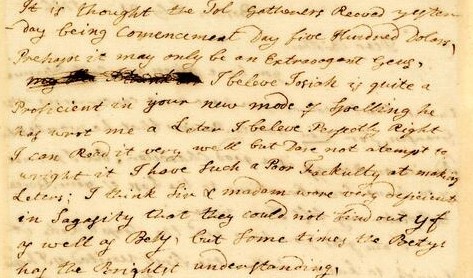 It is thought the Tol Gatherers Receved yester-
day being Comencment Day five Hundred Dolars,
Prehaps it may only be an Extravegant Gess,
I beleve Josiah is quite a
Proficient in your new mode of Spelling he
has wrot me a Later I beleve Parfectly Right
I can Read it very well but Dare not atempt to
wright it I have Such a Poor Fackulty at making
Leters; I think Sir & madam ware very deficient
in Sagasity that they could not find out yf
as well as Bety, but Some times the Betys
has the Brightst understanding,